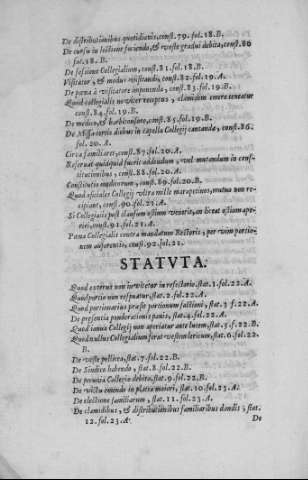 De distributionibus quotidianis, const. 79. fol. 18. B.
De cursu in lectione faciendo, & veste gradui debita, const. 80
fol. 18. B.
De sessione Collegialium, const. 81. fol. 18. B.
Visitator, & modus visitandi, const. 82. fol. 19. A.
De pœna à visitatore imponenda, const. 83. fol. 19. B.
Quod collegialis noviter receptus, clamidem emere teneatur
const. 84. fol. 19. B.
De medico, & barbitonsore, const. 85. fol. 19. B.
De Missa certis diebus in capella Collegij cantanda, const. 86.
fol. 20. A.
Circa familiares, const. 87. fol. 20. A.
Referuat quidquid fuerit addendum, vel mutandum in consti-
titutionibus, const. 88. fol. 20. A.
const. 89. fol. 20. B.
Quod officiales Collegij vltra mille marapetinos, mutuo non re-
cipiant, const. 90. fol. 21. A.
Si Collegialis post clausum ostium venerit, an liceat ostium ape-
riri, const. 91. fol. 21. A.
Pœna Collegialis contra mandatum Rectoris, per vim portio-
nem auferentis, const. 92. fol. 21.
STATVTA.
Quod externus non invitetur in refectorio. stat. 1. fol. 22. A.
Quod portio non respuatur, stat. 2. fol. 22. A.
Quod portionarius præste portionum factioni, stat. 3 f. 22. A.
De præsentia ponderationi panis, stat. 4. fol. 22. A.
Quod ianua Collegij non aperiatur ante lucem, stat. 5. f. 22. B.
Quod nullus Collegialium ferat vestem sericum, stat. 6. fol. 22.
B.
De veste pellicea, stat. 7. fol. 22. B.
De Sindico habendo, stat. 8. fol. 22. B.
De pecunia Collegio debita, stat. 9. fol. 22. B.
De victu emendo in platea maiori, stat. 10. fol. 23. A.
De electione familiarum, stat. 11. fol. 23. A.
De clamidibus, & distributionibus familiaribus dandis, stat.
12. fol. 23. A.
De